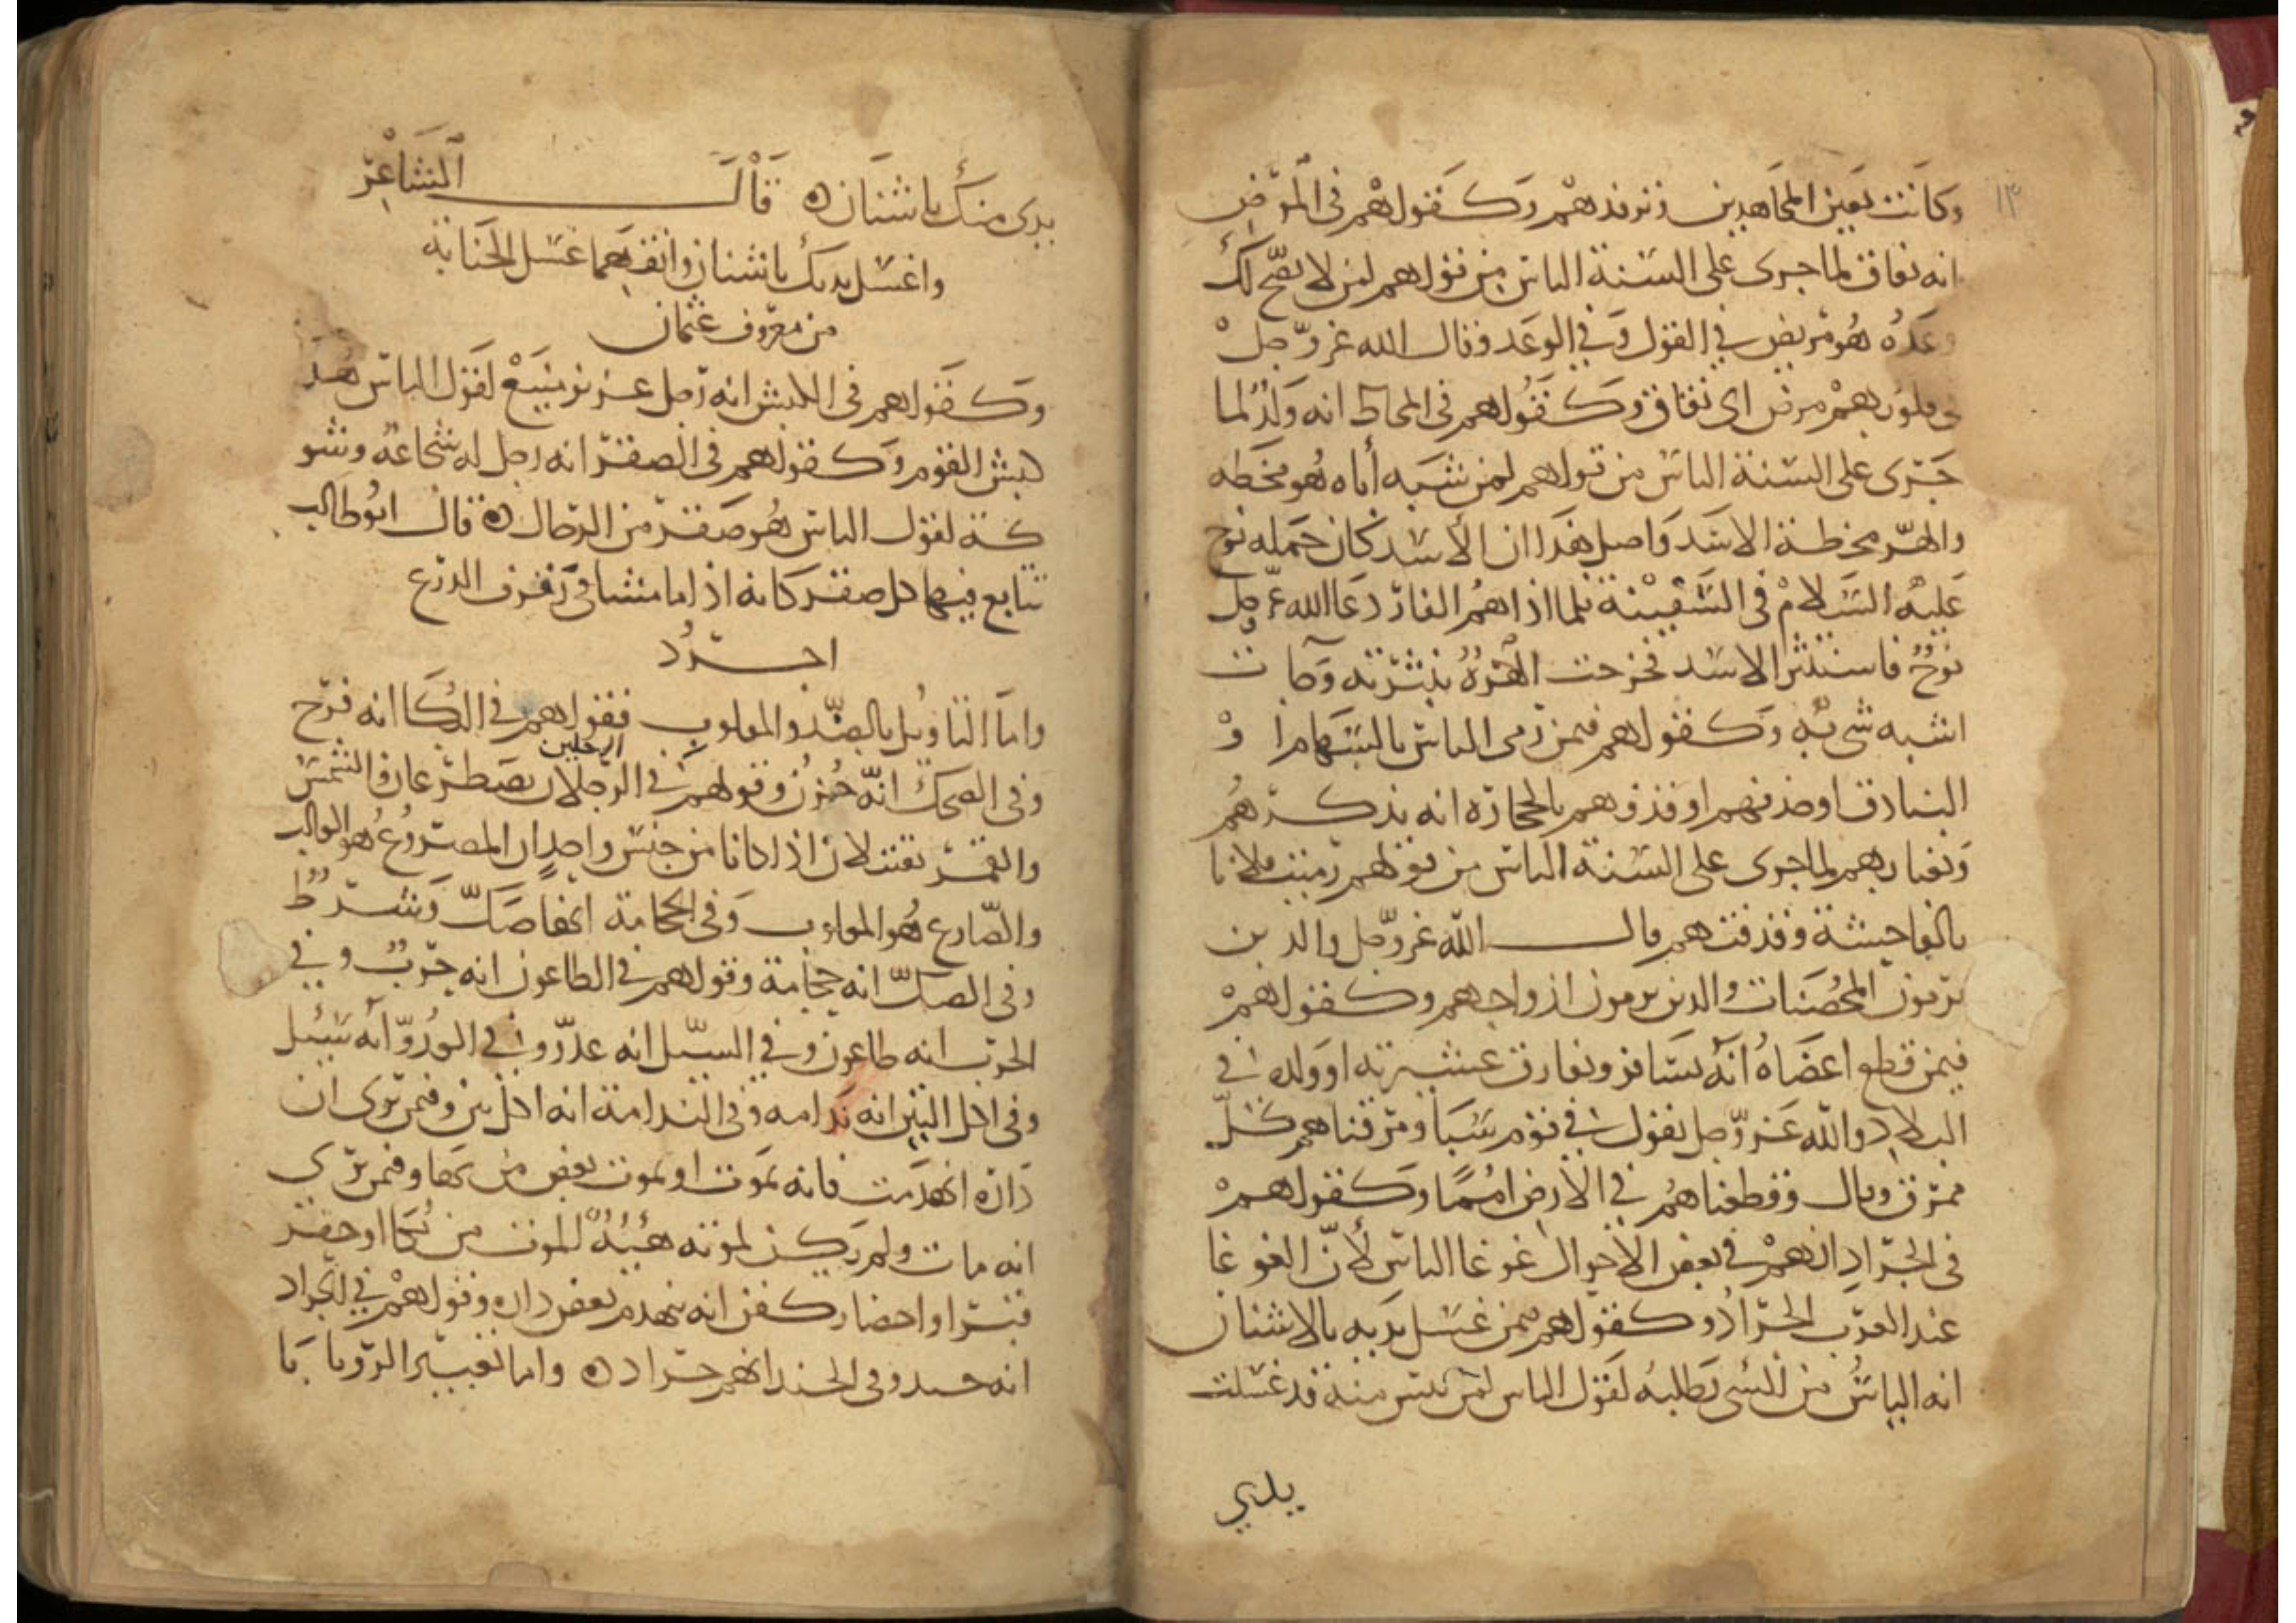 ١٣
وكانت تعين المجاهدين وترفدهم وكقولهم في المرض
انه نفاق لما جرى على السنة الناس من قولهم لمن لا يصح لك
وعده هو مريض في القول وفي الوعد وقال الله عز وجل
في قلوبهم مرض اى نفاق وكقولهم في المخاط انه ولد لما
جرى على السنة الناس من قولهم لمن شبه أباه هو مخطه
والهر مخطة الاسد واصل هذا ان الأسد كان حمله نوح
عليه السلام في السفينة فلما اذاهم الفار دعا الله عز وجل
نوح فاستنثر الاسد فخرجت الهرة بنثرته وجات
اشبه شي به وكقولهم فيمن رمى الناس بالسهام او
البنادق او حذفهم او قذفهم بالحجارة انه يذكرهم
ويغتابهم لما جرى على السنة الناس من قولهم رميت فلانا
بالفاحشة وقذفتهم قال الله عز وجل والذين
يرمون المحصنات والذين يرمون ازواجهم وكقولهم
فيمن قطع اعضاه انه يسافر ويفارق عشيرته او ولده في
البلاد والله عز وجل يقول في قوم سبا ومزقناهم كل
ممزق وقال وقطعناهم في الارض امما وكقولهم
في الجراد انهم في بعض الاحوال غوغا الناس لأن الغوغا
عند العرب الجراد وكقولهم فيمن غسل يديه بالاشنان
انه الياس من الشي يطلبه لقول الناس لمن يئس منه قد غسلت
يدي
يدى منك باشنان قال الشاعر
واغسل يديك باشنان وانقهما غسل الجنابة
من معروف عثمان
وكقولهم في الكبش انه رجل عزيز منيع لقول الناس هذا
كبش القوم وكقولهم في الصقر انه رجل له شجاعة وشو
كة لقول الناس هو صقر من الرجال قال ابو طالب
تتابع فيها كل صقر كانه اذا ما مشا في رفرف الدرع
اجرد
واما التاويل بالضد والمقلوب فقولهم في البكا انه فرح
وفي الضحك انه حزن وقولهم في الرجلان يصطرعان والشمس
الرجلين
والقمر يقتتلان اذا كانا من جنس واحد ان المصروع هو الغالب
والصارع هو المغلوب وفي الحجامة انها صك وشرط
وفي الصك انه حجامة وقولهم في الطاعون انه حرب وفي
الحرب انه طاعون وفي السيل انه عدو وفي العدو انه سيل
وفي اكل التين انه ندامة وفي الندامة انه اكل تين وفيمن يرى ان
داره انهدمت فانه يموت او يموت بعض من بها وفيمن يرى
انه مات ولم يكن لموته هيئة للموت من بكا او حفر
قبر او احضار كفن انه ينهدم بعض داره وقولهم في الجراد
انه جند وفي الجند انهم جراد واما تعبير الرويا با